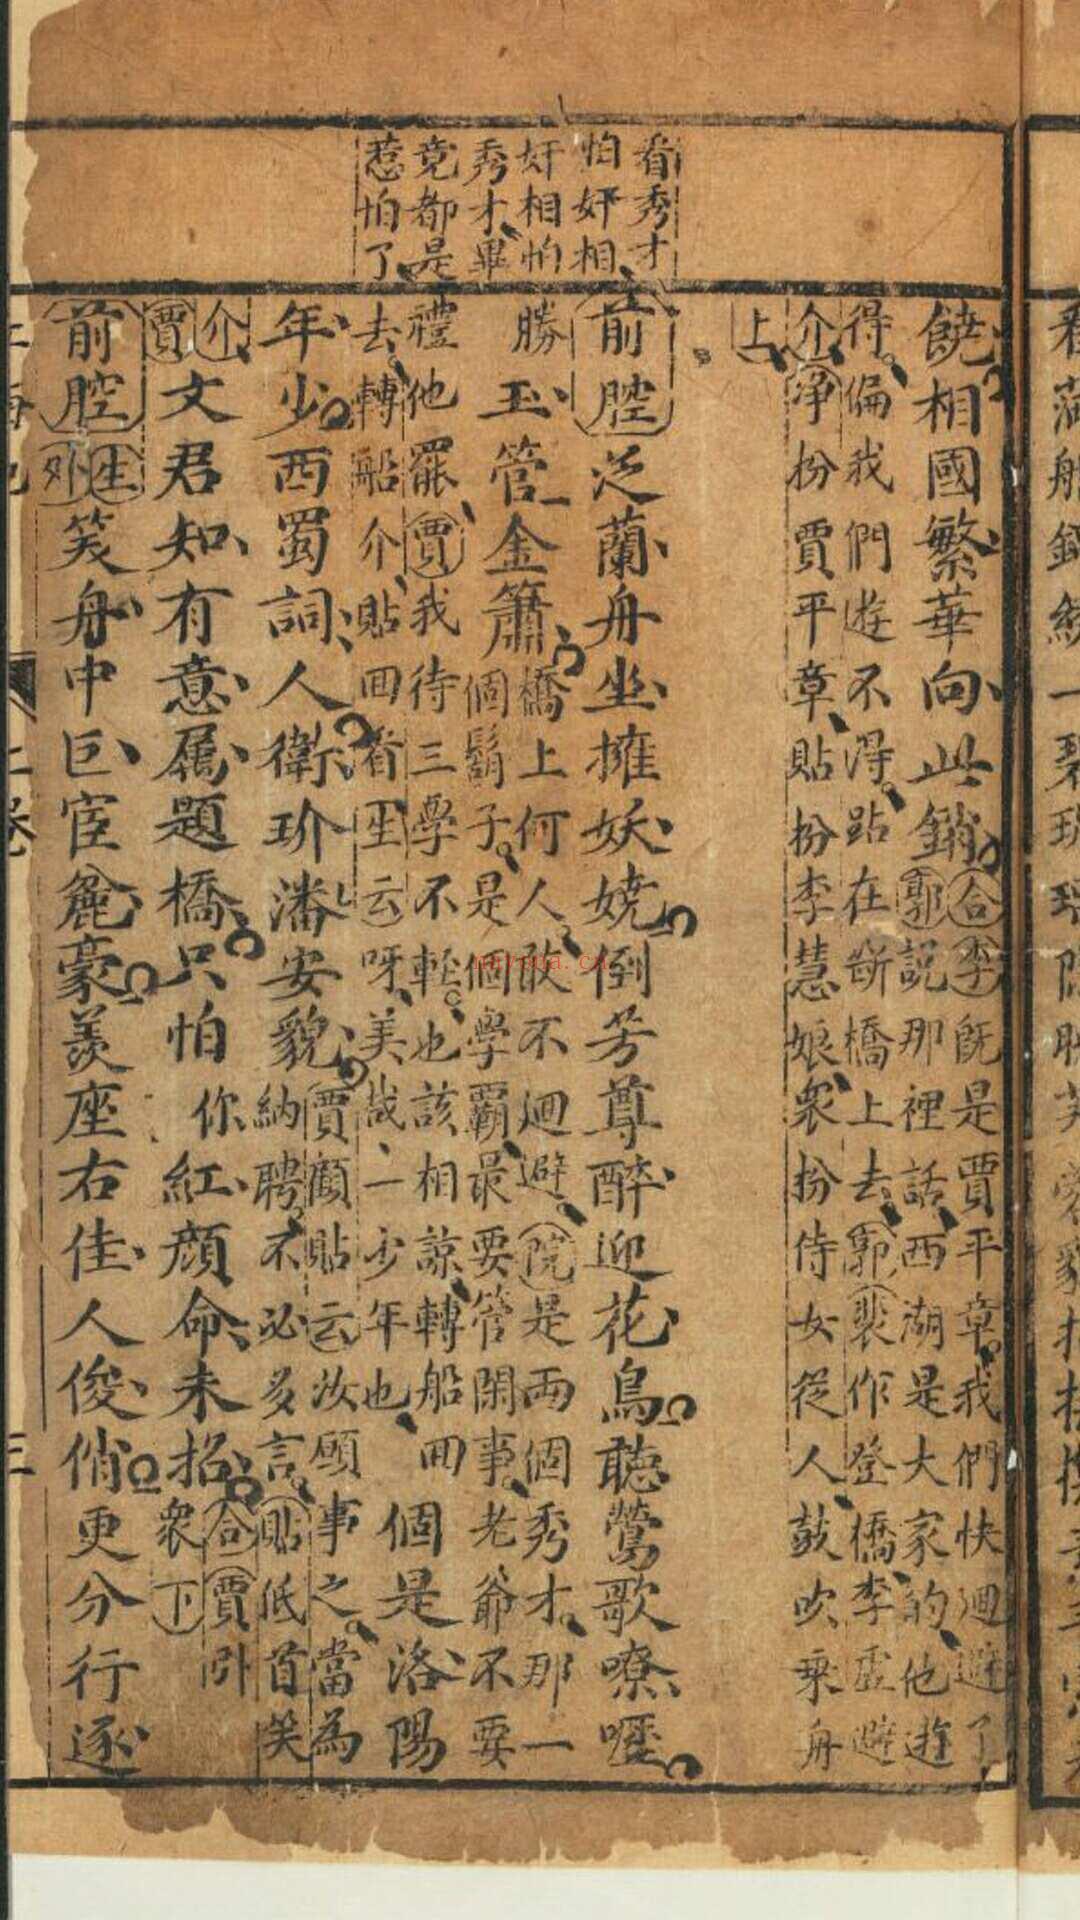 看秀才
怕奸相
奸相怕
秀才畢
竟都是
惹怕了
饒相國繁華向此銷合李既是賈平章我們快迴避了
郭說那裡話西湖是大家的他遊
得偏我們遊不得跕在斷橋上去郭裴作登橋李虛避
介淨扮賈平章貼扮李慧娘衆扮侍女從人鼓吹乘舟
上
前腔泛蘭舟坐擁妖嬈倒芳尊醉迎花鳥聽鶯歌嘹嚦
勝玉管金簫橋上何人敢不迴避院是兩個秀才那一
個鬍子是個學霸最要管閑事老爺不要
禮他罷賈我待三學不輕也該相諒轉船回
去轉船介貼回看生云呀美哉一少年也個是洛陽
年少西蜀詞人衛玠潘安貌賈顧貼云汝願事之當為
納聘不必多言貼低首笑
介賈文君知有意属題橋只怕你紅顔命未招合賈
衆下
前腔生外笑舟中巨宦麄豪羨座右佳人俊俏更分行逐